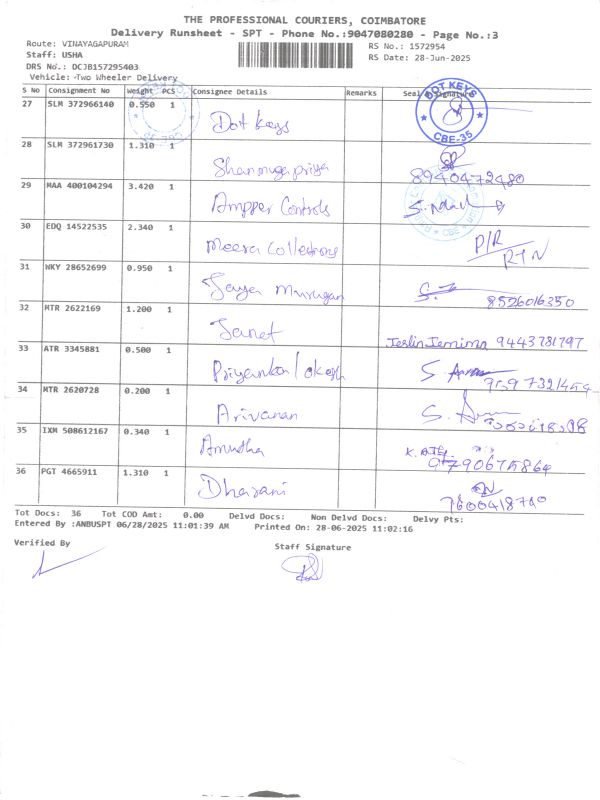 THE PROFESSIONAL COURIERS, COIMBATORE
Delivery Runsheet - SPT - Phone No.:9047080280 - Page No.:3
Route: VINAYAGAPURAM RS No.: 1572954
Staff: USHA RS Date: 28-Jun-2025
DRS No.: DCJB157295403
Vehicle: -Two Wheeler Delivery
S No Consignment No Weight PCS Consignee Details Remarks Seal & Signature
27 SLM 372966140 0.550 1 Dot Keys DOT KEYS CBE-35
28 SLM 372961730 1.310 1 Shanmugapriya 8940472480
29 MAA 400104294 3.420 1 Ampper Controls
30 EDQ 14522535 2.340 1 Meera Collections P/R RTN
31 WKY 28652699 0.950 1 Jaya Murugan 8526016350
32 MTR 2622169 1.200 1 Janet Jerlin Jemima 9443781797
33 ATR 3345881 0.500 1 Priyanka lokesh
34 MTR 2620728 0.200 1 Arivanan
35 IXM 508612167 0.340 1 Amudha 9790675864
36 PGT 4665911 1.310 1 Dharani
Tot Docs: 36 Tot COD Amt: 0.00 Delvd Docs: Non Delvd Docs: Delvy Pts:
Entered By :ANBUSPT 06/28/2025 11:01:39 AM Printed On: 28-06-2025 11:02:16
Verified By Staff Signature